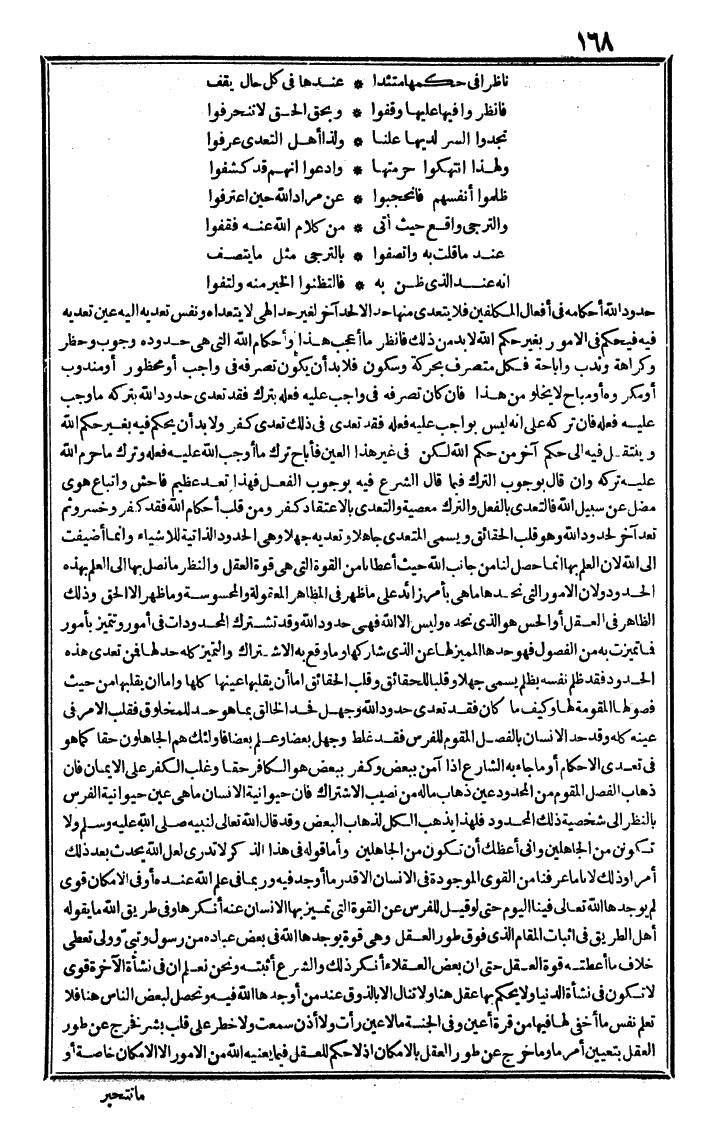 ١٦٨
ناظرا في حكمها متئدا * عندها في كل حال يقف
فانظروا فيها عليها وقفوا * وبحق الحق لا تنحرفوا
تجدوا السر لديها علنا * ولذا أهل التعدي عرفوا
ولهذا انتهكوا حرمتها * وادعوا انهم قد كشفوا
ظلموا أنفسهم فانحجبوا * عن مراد الله حين اعترفوا
والترجي واقع حيث أتى * من كلام الله عنه فقفوا
عند ما قلت به واتصفوا * بالترجي مثل ما يتصف
انه عند الذي ظن به * فالتظنوا الخير منه ولتفوا
حدود الله أحكامه في أفعال المكلفين فلا يتعدى منها حد الا لحد آخر لغير حد الهي لا يتعداه ونفس تعديه اليه عين تعديه
فيه فيحكم في الامور بغير حكم الله لا بد من ذلك فانظر ما أعجب هذا وأحكام الله التي هي حدوده وجوب وحظر
وكراهة وندب واباحة فكل متصرف بحركة وسكون فلا بد أن يكون تصرفه في واجب أو محظور أو مندوب
أو مكروه أو مباح لا يخلو من هذا فان كان تصرفه في واجب عليه فعله بترك فقد تعدى حدود الله بتركه ما وجب
عليه فعله فان تركه على انه ليس بواجب عليه فعله فقد تعدى في ذلك تعدى كفر ولا بد أن يحكم فيه بغير حكم الله
وينتقل فيه الى حكم آخر من حكم الله لكن في غير هذا العين فأباح ترك ما أوجب الله عليه فعله وترك ما حرم الله
عليه تركه وان قال بوجوب الترك فيما قال الشرع فيه بوجوب الفعل فهذا تعد عظيم فاحش واتباع هوى
مضل عن سبيل الله فالتعدي بالفعل والترك معصية والتعدي بالاعتقاد كفر ومن قلب أحكام الله فقد كفر وخسر وثم
تعد آخر لحدود الله وهو قلب الحقائق ويسمى المتعدي جاهلا وتعديه جهلا وهي الحدود الذاتية للاشياء وانما أضيفت
الى الله لان العلم بها انما حصل لنا من جانب الله حيث أعطانا من القوة التي هي قوة العقل والنظر ما نصل بها الى العلم بهذه
الحدود ولان الامور التي نحدها ما هي بأمر زائد على ما ظهر في المظاهر المعقولة والمحسوسة وما ظهر الا الحق وذلك
الظاهر في العقل أو الحس هو الذي نحده وليس الا الله فهي حدود الله وقد تشترك المحدودات في أمور وتتميز بأمور
فما تميزت به من الفصول فهو حدها المميز لها عن الذي شاركها وما وقع به الاشتراك والتميز كله حد لها فمن تعدى هذه
الحدود فقد ظلم نفسه بظلم يسمى جهلا وقلبا للحقائق وقلب الحقائق اما أن يقلبها عينها كلها واما ان يقلبها من حيث
فصولها المقومة لها وكيف ما كان فقد تعدى حدود الله وجهل فحد الخالق بما هو حد للمخلوق فقلب الامر في
عينه كله وقد حد الانسان بالفصل المقوم للفرس فقد غلط وجهل بعضا وعلم بعضا فاولئك هم الجاهلون حقا كما هو
في تعدى الاحكام أو ما جاء به الشارع اذا آمن ببعض وكفر ببعض هو الكافر حقا وغلب الكفر على الايمان فان
ذهاب الفصل المقوم من المحدود عين ذهاب ماله من نصيب الاشتراك فان حيوانية الانسان ما هي عين حيوانية الفرس
بالنظر الى شخصية ذلك المحدود فلهذا يذهب الكل لذهاب البعض وقد قال الله تعالى لنبيه صلى الله عليه وسلم ولا
تكونن من الجاهلين واني أعظك أن تكون من الجاهلين وأما قوله في هذا الذكر لا تدري لعل الله يحدث بعد ذلك
أمرا وذلك لاننا ما عرفنا من القوى الموجودة في الانسان الا قدر ما أوجد فيه وربما في علم الله عنده أو في الامكان قوى
لم يوجدها الله تعالى فينا اليوم حتى لو قيل للفرس عن القوة التي تميز بها الانسان عنه أنكرها وفي طريق الله ما يقوله
أهل الطريق في اثبات المقام الذي فوق طور العقل وهي قوة يوجدها الله في بعض عباده من رسول ونبي وولي تعطى
خلاف ما أعطته قوة العقل حتى ان بعض العقلاء أنكر ذلك والشرع أثبته ونحن نعلم ان في نشأة الآخرة قوى
لا تكون في نشأة الدنيا ولا يحكم بها عقل هنا ولا تنال الا بالذوق عند من أوجدها الله فيه وتحصل لبعض الناس هنا فلا
تعلم نفس ما أخفى لها فيها من قرة أعين وفي الجنة ما لا عين رأت ولا أذن سمعت ولا خطر على قلب بشر نفرج عن طور
العقل بتعيين أمر ما وما خرج عن طور العقل بالامكان اذ لا حكم للعقل فيما يعنيه الله من الامور الا الامكان خاصة أو
ما تتحير